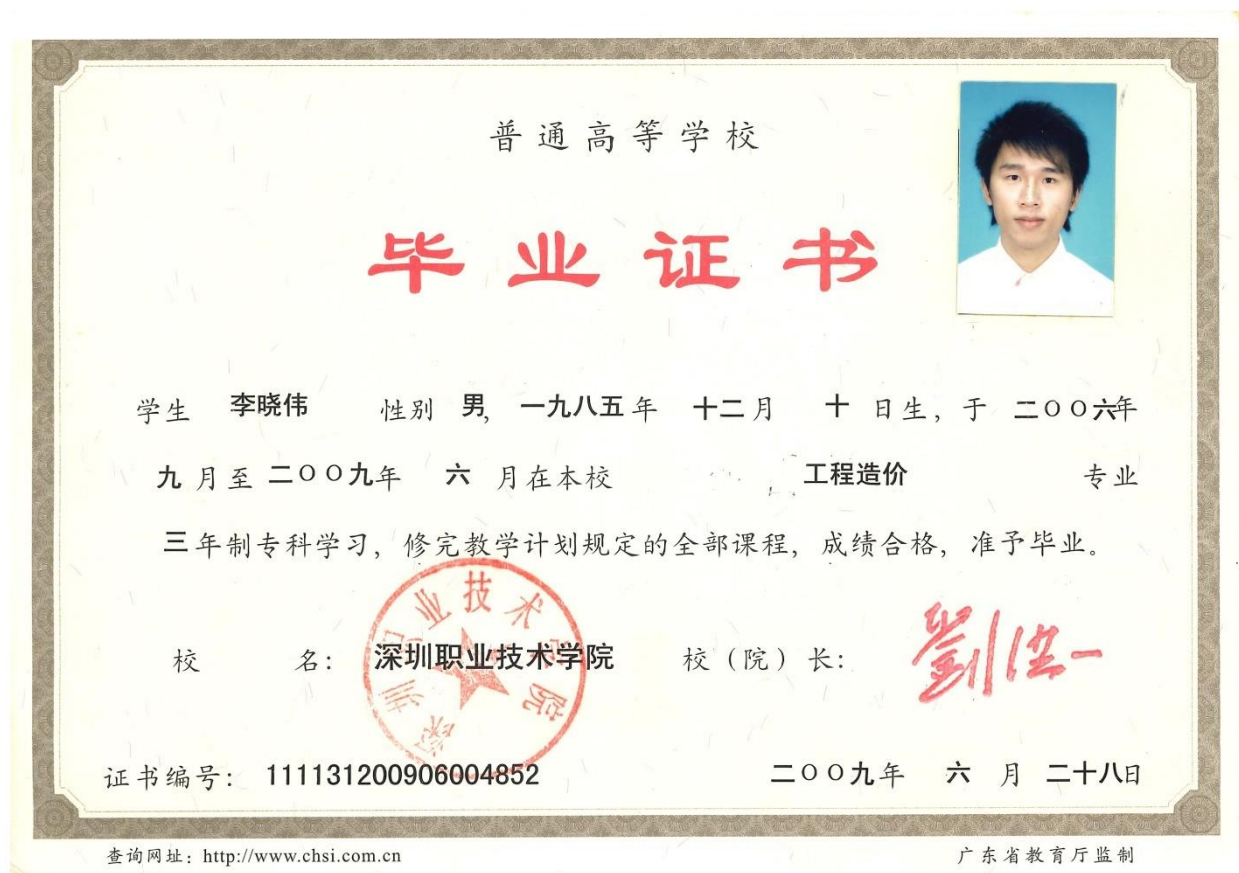 普通高等学校
毕业证书
学生 李晓伟 性别 男, 一九八五年 十二月 十日生, 于 二〇〇六年
九月至二〇〇九年 六月在本校 工程造价 专业
三年制专科学习, 修完教学计划规定的全部课程, 成绩合格, 准予毕业。
校 名: 深圳职业技术学院 校(院)长: 劉洪一
深圳职业技术学院
证书编号: 111131200906004852 二〇〇九年 六月 二十八日
查询网址: http://www.chsi.com.cn 广东省教育厅监制